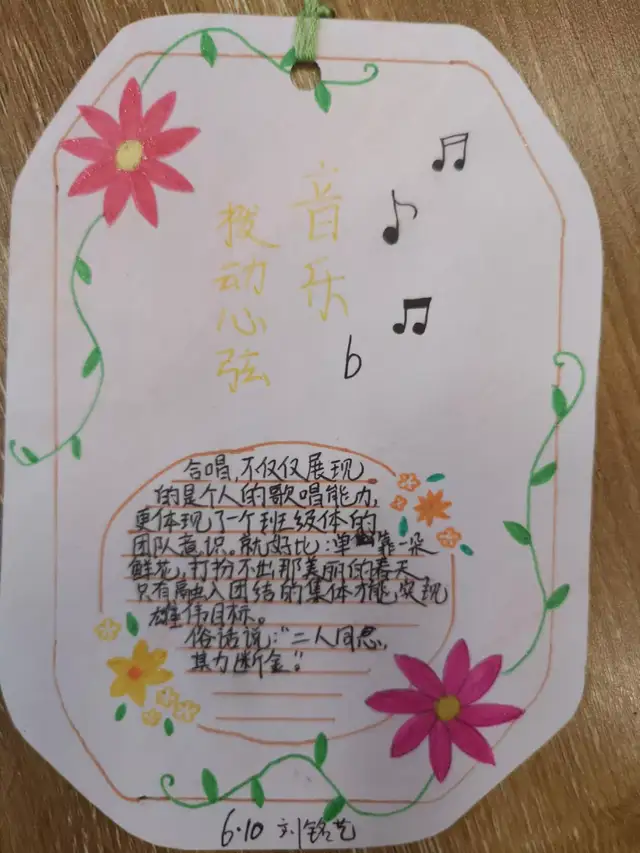 音乐
拨动心弦
合唱,不仅仅展现
的是个人的歌唱能力,
更体现了一个班级体的
团队意识。就好比:单靠一朵
鲜花,打扮不出那美丽的春天
只有融入团结的集体才能实现
雄伟目标。
俗话说:“二人同心,
其力断金”。
6.10 刘铭艺